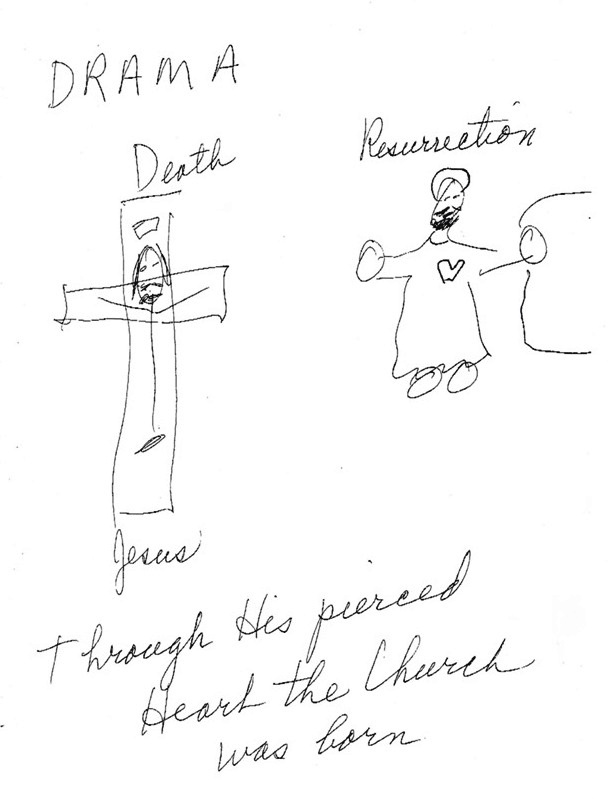 DRAMA
Death
Resurrection
Jesus
Through His pierced
Heart the Church
was born